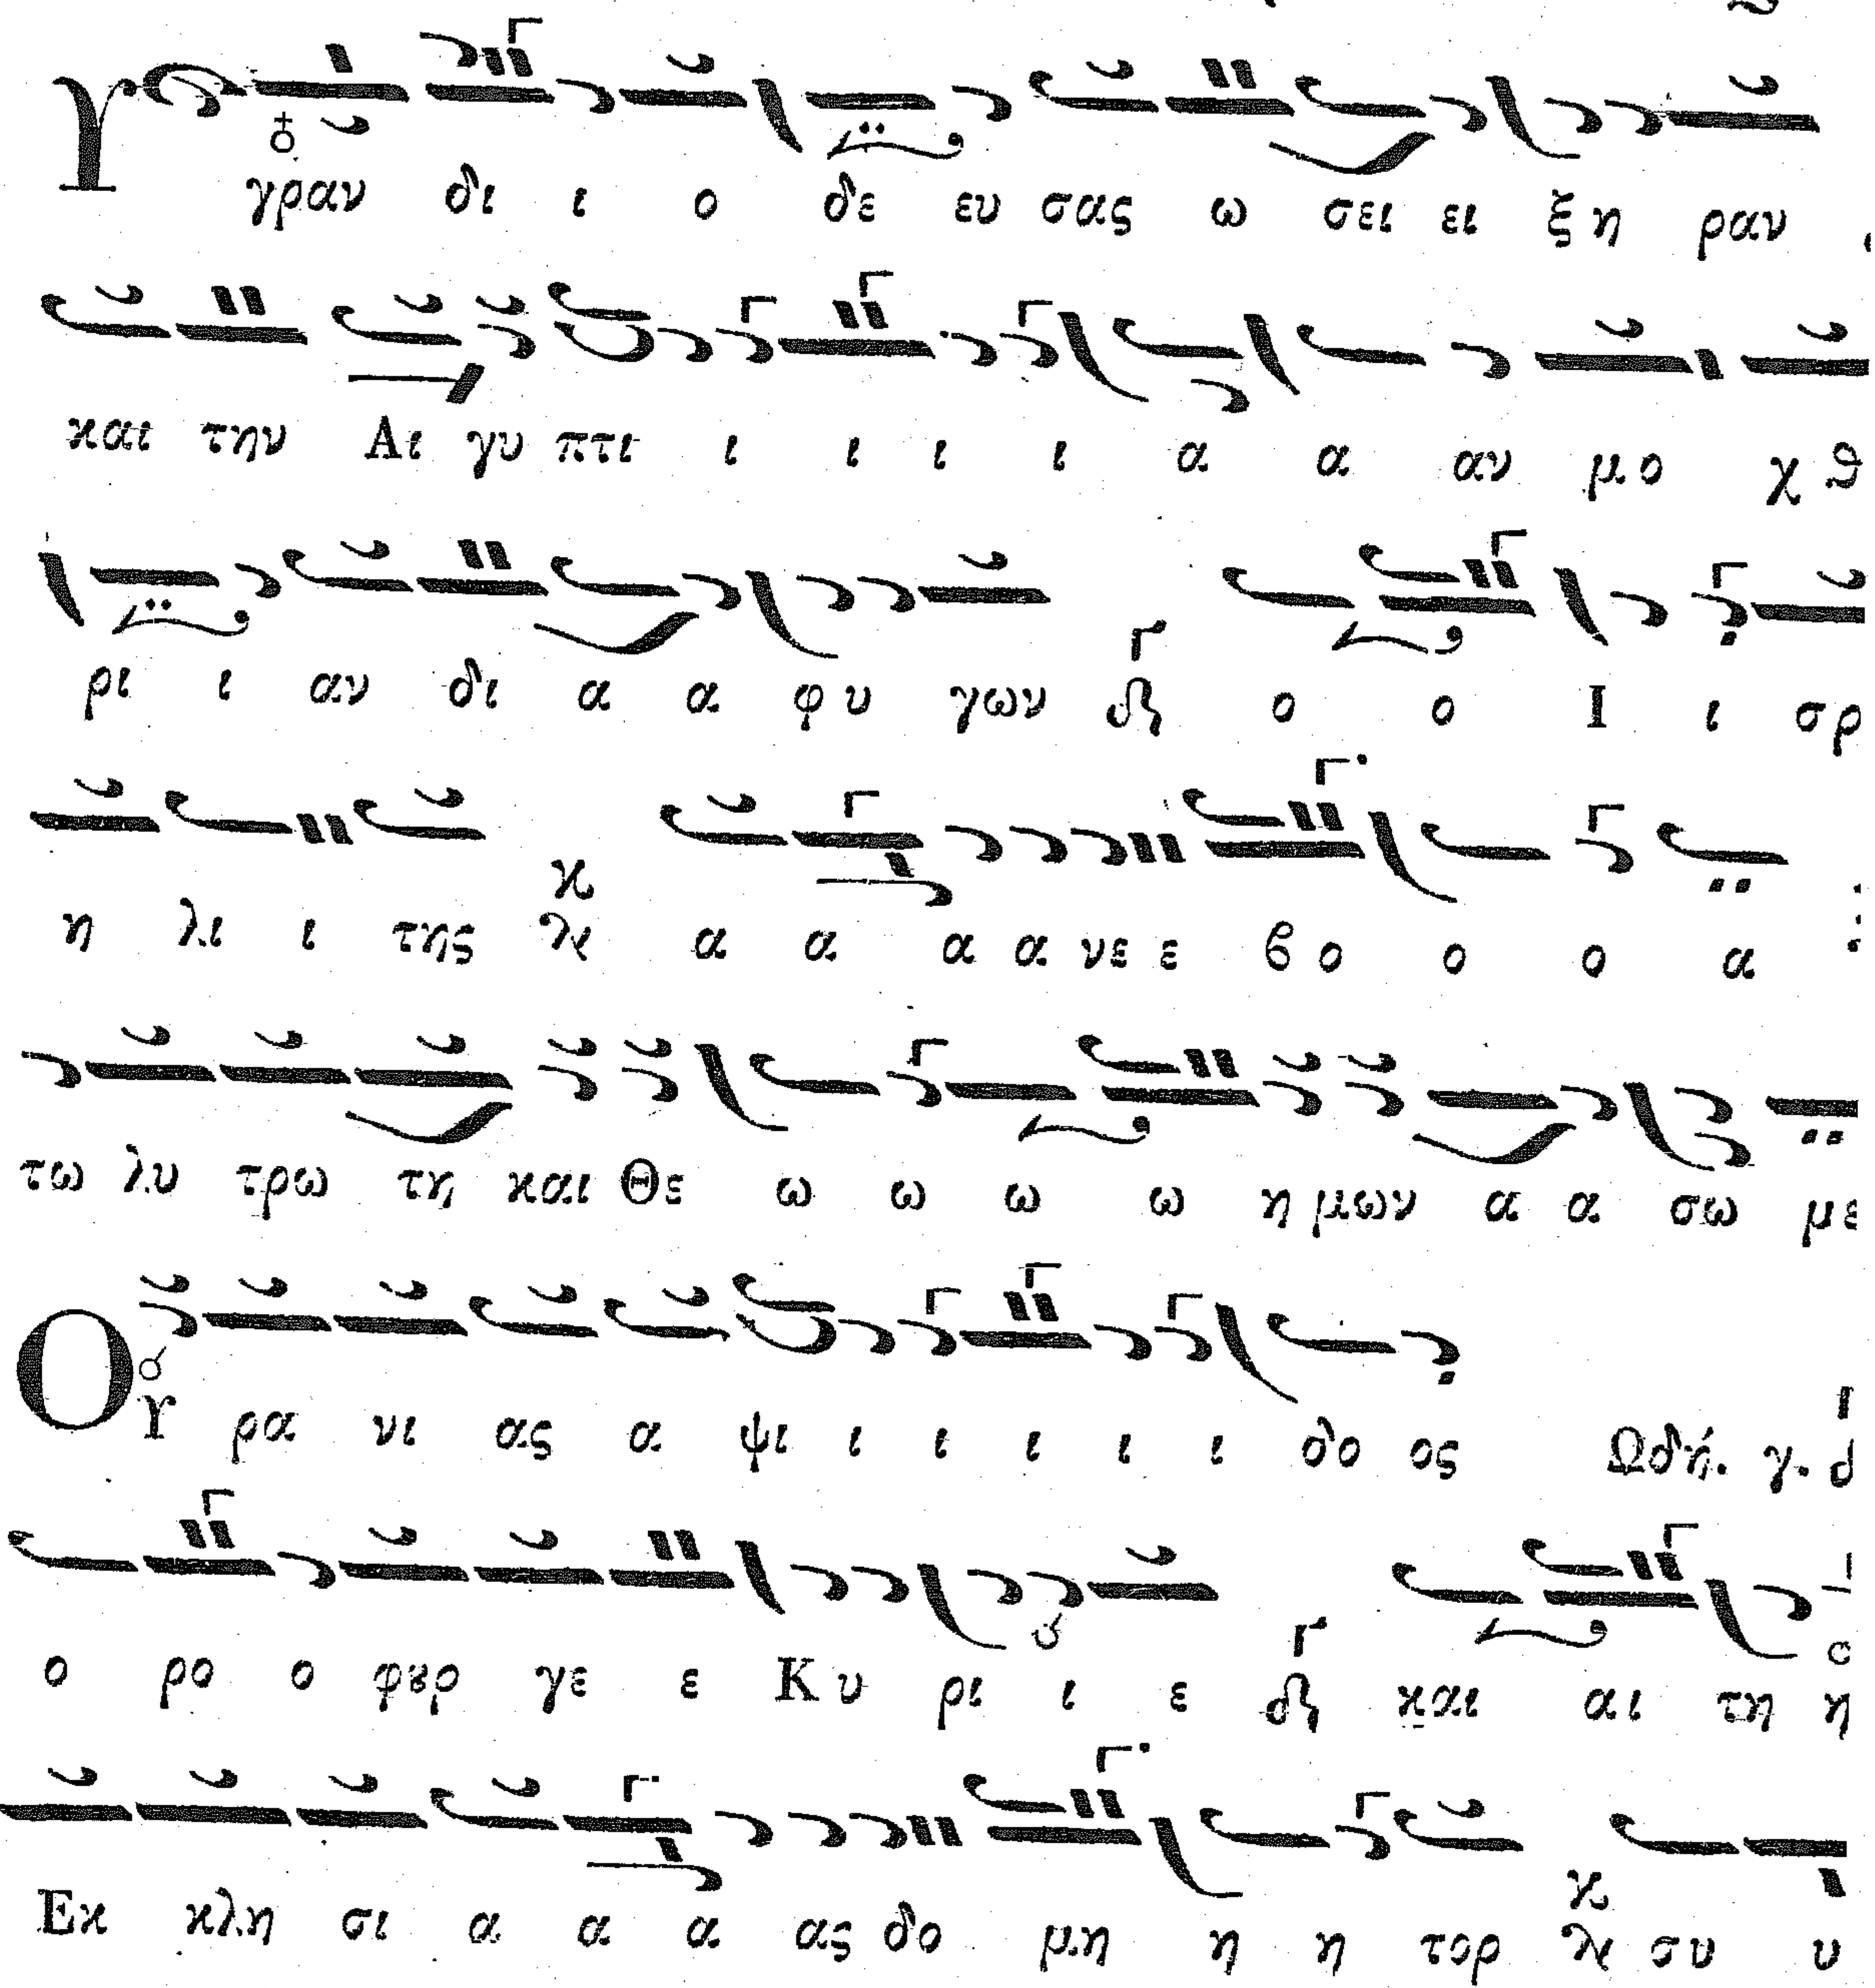 Υγραν δι ι ο δε ευ σας ω σει ει ξη ραν
και την Αι γυ πτι ι ι ι ι α α αν μο χθ
ρι ι αν δι α α φυ γων ο ο Ι ι σρ
η λι ι της α α α α νε ε βο ο ο α
τω λυ τρω τῃ και Θε ω ω ω ω η μων α α σω με
Ου ρα νι ας α ψι ι ι ι ι ι δο ος Ωδή. γ.
ο ρο ο φȣρ γε ε Κυ ρι ι ε και αι τη η
Εκ κλη σι α α α ας δο μη η η τορ συ υ